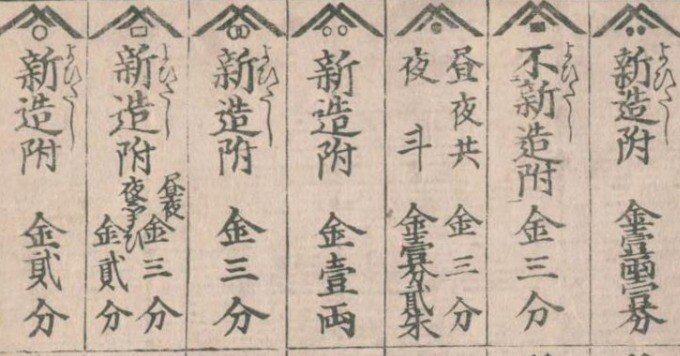 よびたし
新造附 金壹両壹分
よびたし
不新造附 金三分
昼夜共 金三分
夜斗 金壹分貳朱
新造附 金壹両
よびたし
新造附 金三分
よびたし
新造附
昼夜 金三分
夜 金貳分
よびたし
新造附 金貳分